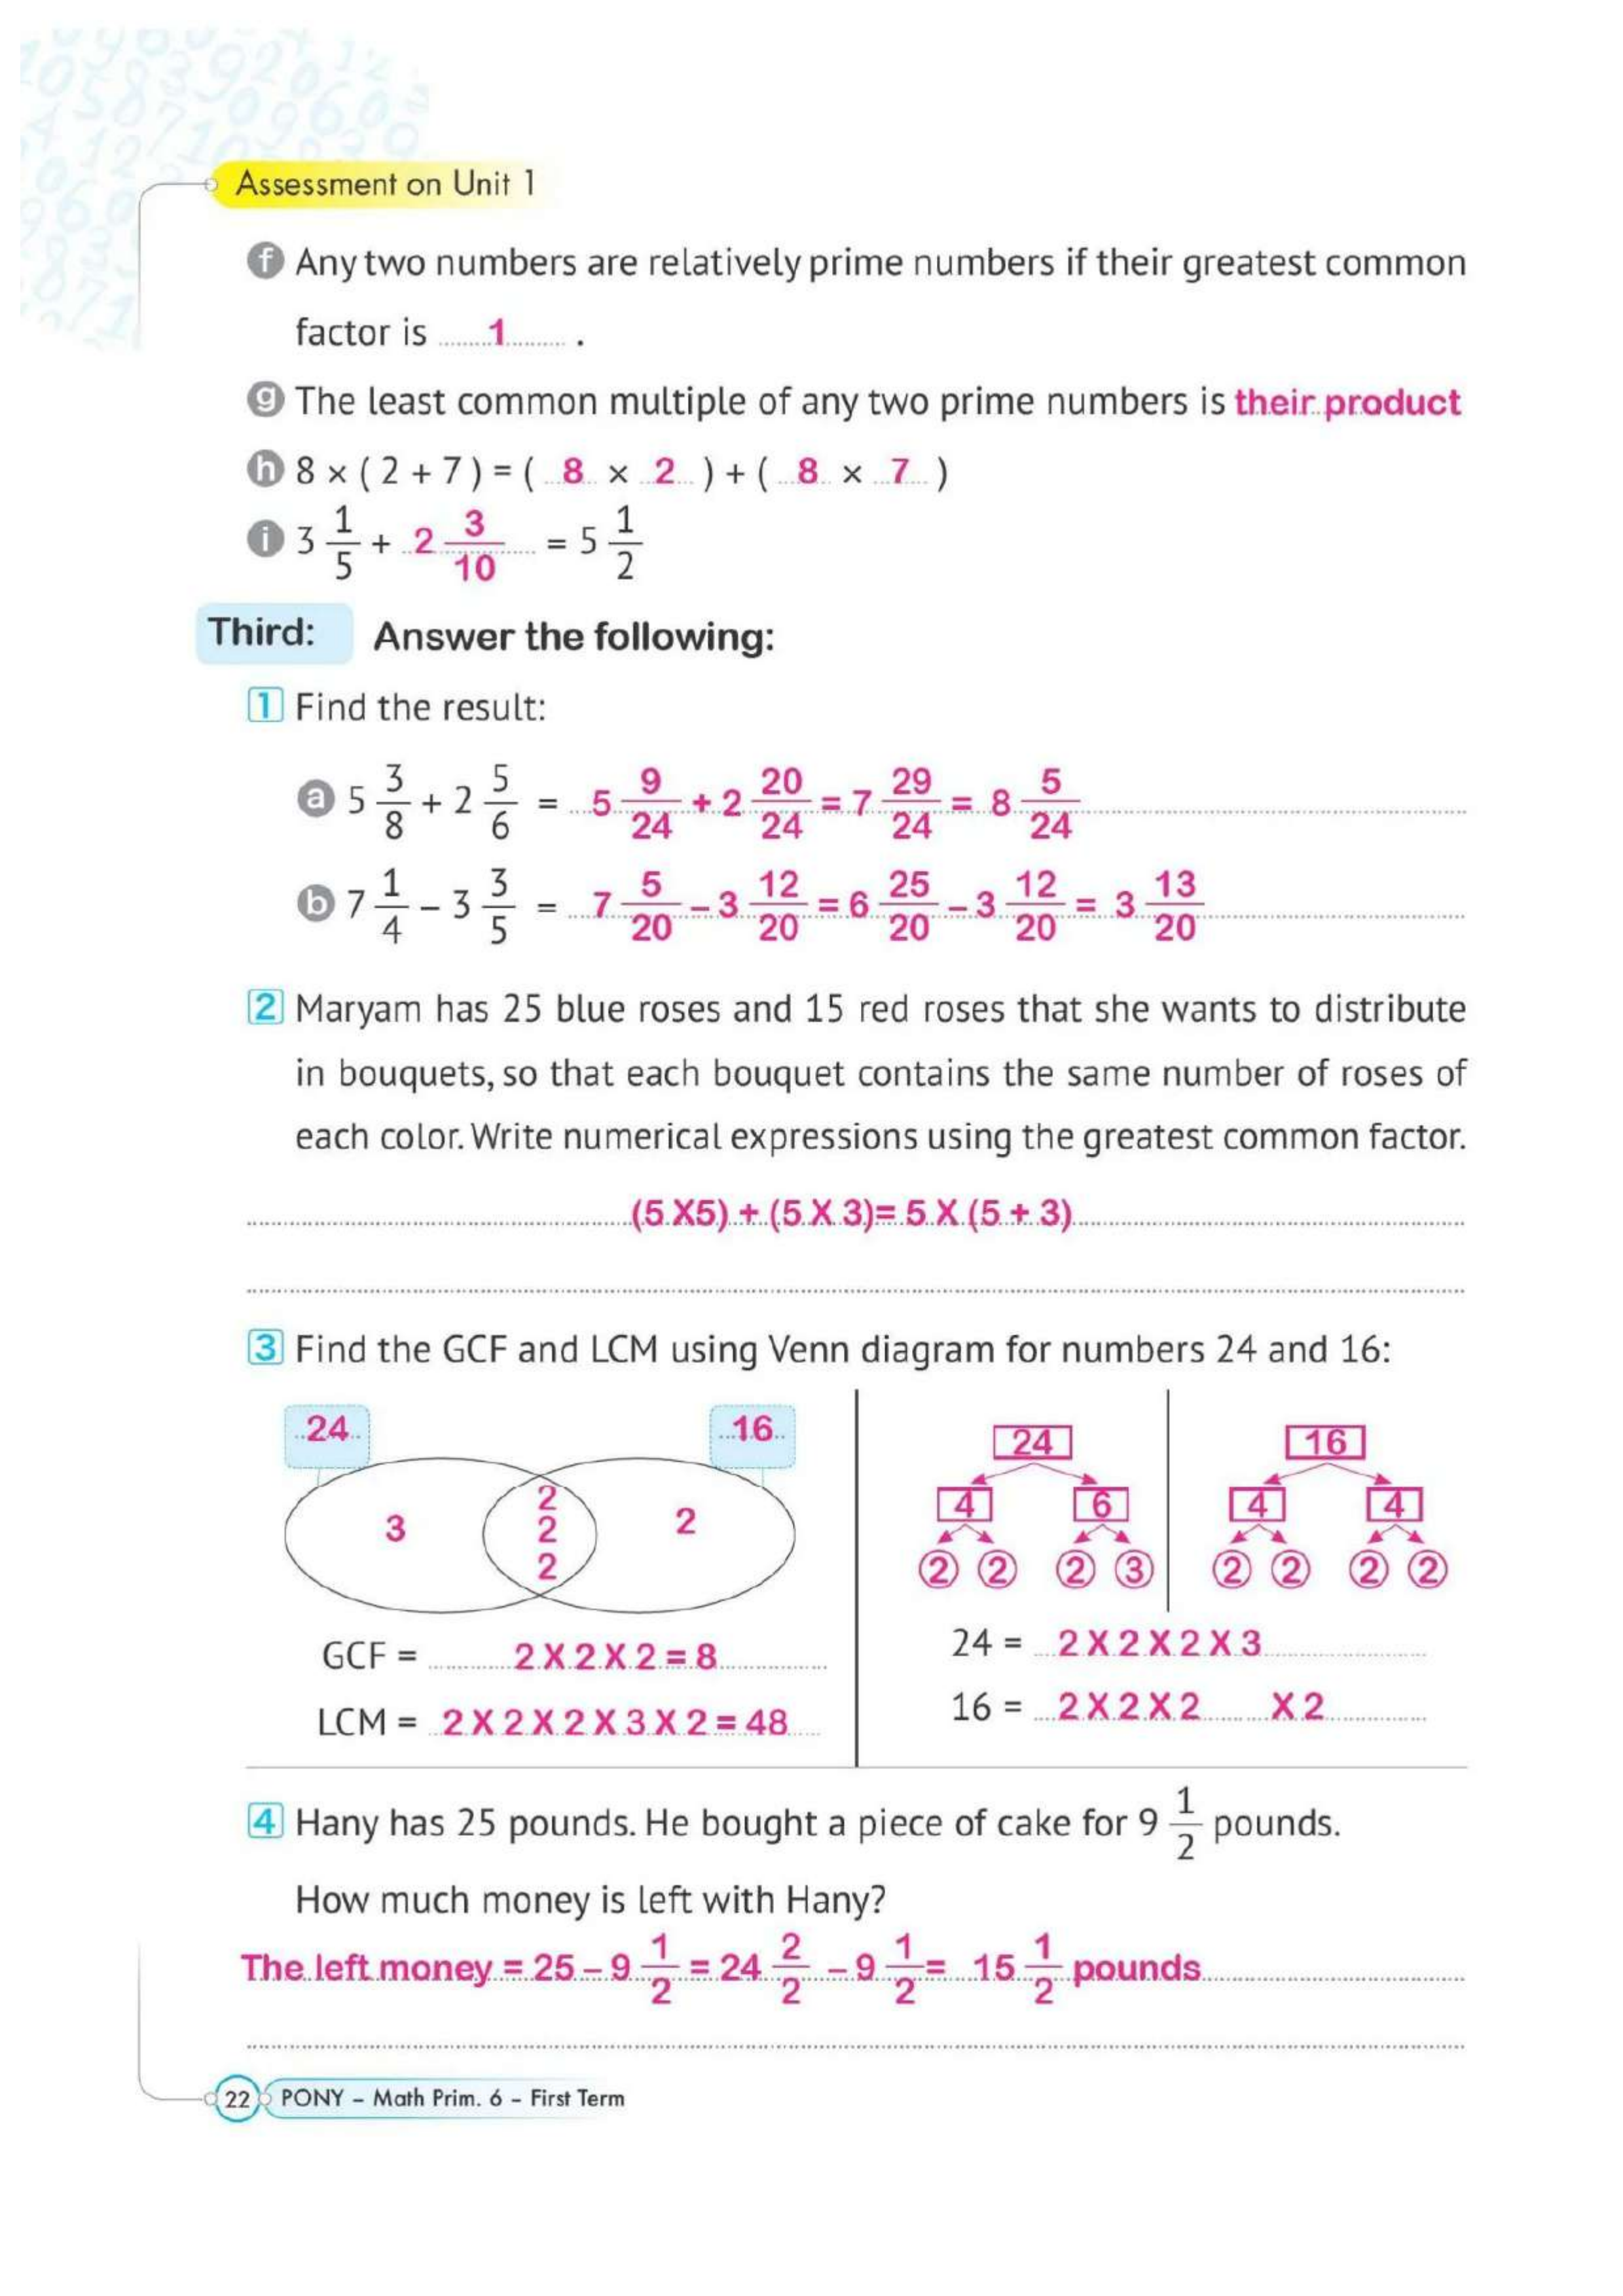 Assessment on Unit 1
f Any two numbers are relatively prime numbers if their greatest common
factor is ........1......... .
g The least common multiple of any two prime numbers is their product
h 8 × ( 2 + 7 ) = ( 8 × 2 ) + ( 8 × 7 )
i 3 1/5 + 2 3/10 = 5 1/2
Third: Answer the following:
1 Find the result:
a 5 3/8 + 2 5/6 = 5 9/24 + 2 20/24 = 7 29/24 = 8 5/24
b 7 1/4 – 3 3/5 = 7 5/20 – 3 12/20 = 6 25/20 – 3 12/20 = 3 13/20
2 Maryam has 25 blue roses and 15 red roses that she wants to distribute
in bouquets, so that each bouquet contains the same number of roses of
each color. Write numerical expressions using the greatest common factor.
(5 X5) + (5 X 3)= 5 X (5 + 3)
3 Find the GCF and LCM using Venn diagram for numbers 24 and 16:
24 16
3
2
2
2
2
GCF = 2 X 2 X 2 = 8
LCM = 2 X 2 X 2 X 3 X 2 = 48
24 16
4 6 4 4
2 2 2 3 2 2 2 2
24 = 2 X 2 X 2 X 3
16 = 2 X 2 X 2 X 2
4 Hany has 25 pounds. He bought a piece of cake for 9 1/2 pounds.
How much money is left with Hany?
The left money = 25 – 9 1/2 = 24 2/2 – 9 1/2 = 15 1/2 pounds
22 PONY – Math Prim. 6 – First Term